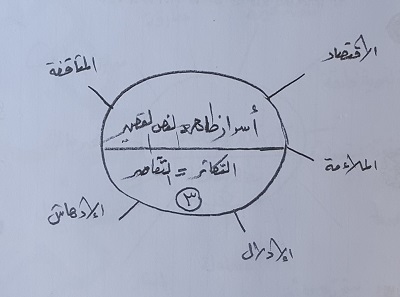 الاقتصاد
المثاقفة
أسرار ظاهرة النص القصير
الملاءمة
التكاثر = التقاصر
٣
الإدهاش
الإدلال